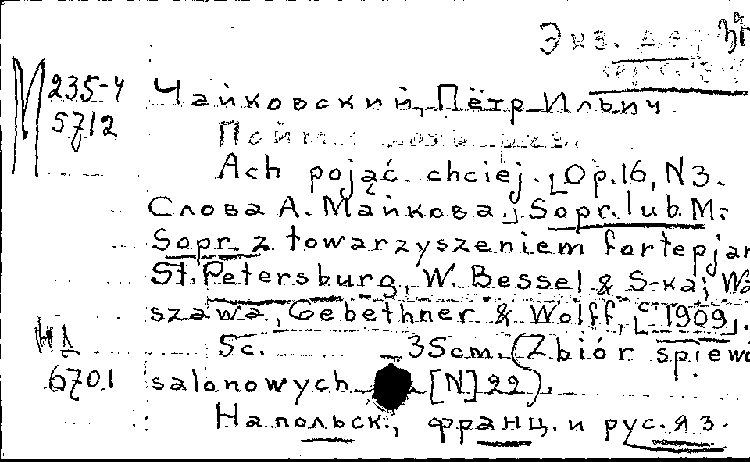 Экз. деф
М 235-4
5712
Чайковский, Пётр Ильич
Пойми хоть раз.
Ach pojąć chciej. [Op.16, N3.
Слова А. Майкова.] Sopr. lub M:
Sopr. z towarzyszeniem fortepjan
St.Petersburg, W. Bessel & S-ka; Wa
szawa, Gebethner & Wolff, [c.1909].
5с. 35cm. (Zbiór śpiewó
6701
salonowych [N] 22).
На польск., франц. и рус. яз.